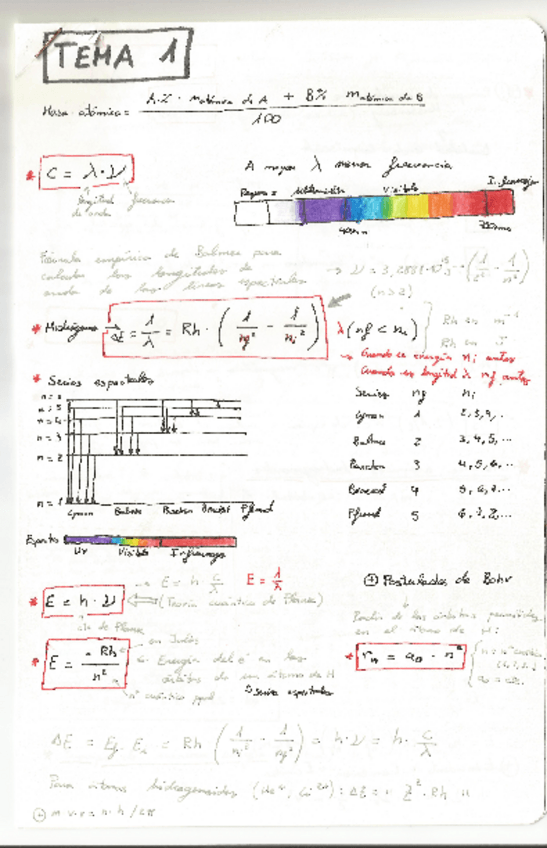 TEMA 1
Masa atómica = A% · Matómica de A + B% Matómica de B
100
* C = λ · ν
longitud de onda
frecuencia
A mayor λ menor frecuencia
Rayos x ultravioleta Visible Infrarrojo
400nm 700nm
Fórmula empírica de Balmer para
calcular las longitudes de
onda de las líneas espectrales
→ ν = 3,2881·10¹⁵ · (1/2² - 1/n²)
(n>2)
* Hidrógeno → ΔE = 1/λ = Rh · (1/nf² - 1/ni²) λ (nf < ni)
Rh en m⁻¹
Rh en J
→ Cuando es energía ni antes
Cuando es longitud λ nf antes
* Series espectrales
n = 5
n = 4
n = 3
n = 2
n = 1
Lyman Balmer Paschen Bracket Pfund
Series nf ni
Lyman 1 2, 3, 4, ...
Balmer 2 3, 4, 5, ...
Paschen 3 4, 5, 6, ...
Bracket 4 5, 6, 7, ...
Pfund 5 6, 7, 8, ...
Espectro
UV Visible Infrarrojo
* E = h · ν
→ E = h · c/λ
E = 1/λ
(Teoría cuántica de Planck)
cte de Planck
⊕ Postulados de Bohr
Radio de las órbitas permitidas
en el átomo de H:
* E = - Rh/n²
en Julios
Energía del e⁻ en las
órbitas de un átomo de H
nº cuántico ppal.
Series espectrales
* rn = a₀ · n²
ΔE = Ef - Ei = Rh (1/ni² - 1/nf²) = h · ν = h · c/λ
Para átomos hidrogenoides (He⁺, Li²⁺) : ΔE = - Z² · Rh
⊕ m·v·r = n·h/2π